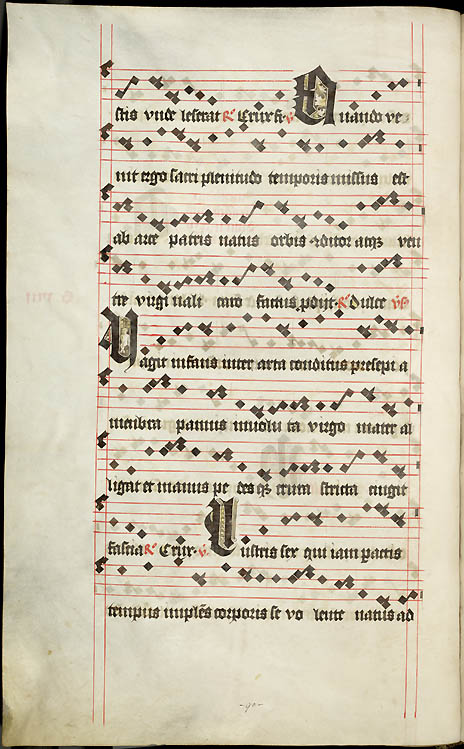 stis vnde leserat R͛ Crux fi. v̾ Quando ve
nit ergo sacri plenitudo temporis missus est
ab arce patris natus orbis ꝯditor atqꝫ ven
tre virginali caro factus ꝓdijt. R͛ Dulce v̾s
Vagit infans inter arta conditus presepi a
membra pannis inuolu ta virgo mater al
ligat et manus pe desqꝫ crura stricta cingit
fascia R͛ Crux. v̾ Lustris sex qui iam pactis
tempus implēs corporis se vo lente natus ad
-90-